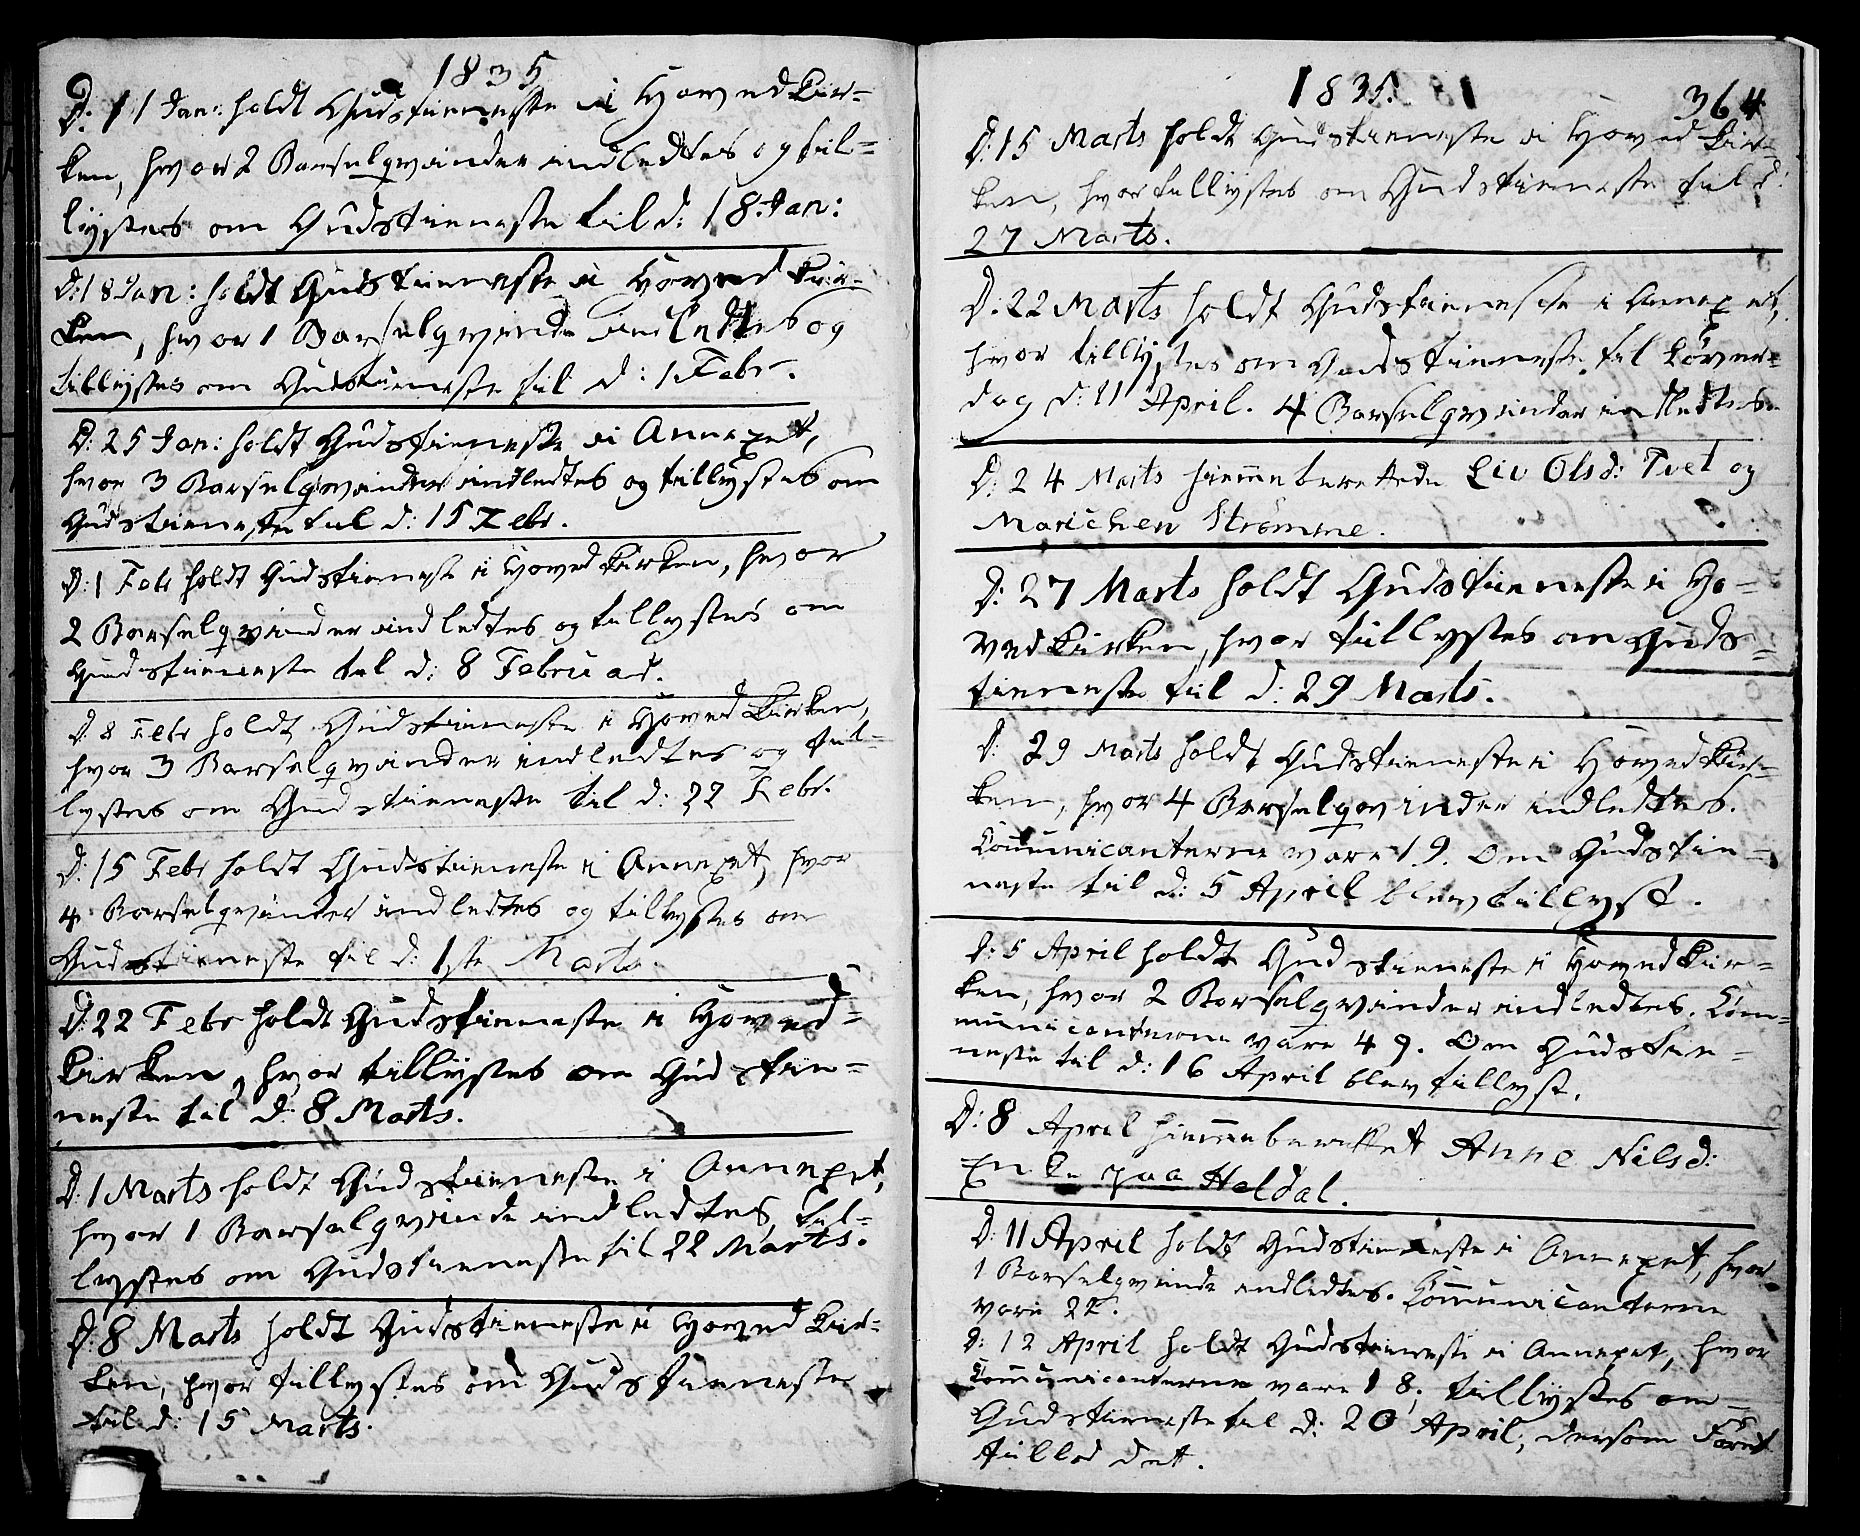 1835
D: 11 Jan: holdt Gudstieneste i Hovedkir-
ken, hvor 2 Barselqvinder indledtes og til-
lystes om Gudstieneste til d: 18. Jan:
D: 18 Jan: holdt Gudstieneste i Hovedkir-
ken, hvor 1 Barselqvinde indledtes og
tillystes om Gudstieneste til d: 1 Febr.
D: 25 Jan: holdt Gudstieneste i Annexet,
hvor 3 Barselqvinder indledtes og tillystes om
Gudstieneste til d: 15 Febr.
D: 1 Febr holdt Gudstieneste i Hovedkirken, hvor
2 Barselqvinder indledtes og tillystes om
Gudstieneste til d: 8 Februar.
D: 8 Febr holdt Gudstieneste i Hovedkirken,
hvor 3 Barselqvinder indledtes og til-
lystes om Gudstieneste til d: 22 Febr.
D: 15 Febr holdt Gudstieneste i Annexet, hvor
4 Barselqvinder indledtes og tillystes om
Gudstieneste til d: 1ste Marts.
D: 22 Febr holdt Gudstieneste i Hoved-
kirken, hvor tillystes om Gudstie-
neste til d: 8 Marts.
D: 1 Marts holdt Gudstieneste i Annexet,
hvor 1 Barselqvinde indledtes, til-
lystes om Gudstieneste til 22 Marts.
D: 8 Marts holdt Gudstieneste i Hovedkir-
ken, hvor tillystes om Gudstieneste
til d: 15 Marts.
1835.
364
D: 15 Marts holdt Gudstieneste i Hovedkir-
ken, hvor tillystes om Gudstieneste til d:
27 Marts.
D: 22 Marts holdt Gudstieneste i Annexet,
hvor tillystes om Gudstieneste til Löver-
dag d: 11 April. 4 Barselqvinder indledtes.
D: 24 Marts hiem̄eberettede Liv Olsd: Tvet og
Marichen Strømme.
D: 27 Marts holdt Gudstieneste i Ho-
vedkirken, hvor tillystes om Guds-
tieneste til d: 29 Marts.
D: 29 Marts holdt Gudstieneste i Hovedkir-
ken, hvor 4 Barselqvinder indledtes.
Com̄unicanterne vare 19. Om Gudstie-
neste til d: 5 April blev tillyst.
D: 5 April holdt Gudstieneste i Hovedkir-
ken, hvor 2 Barselqvinder indledtes. Com-
municanterne vare 49. Om Gudstie-
neste til d: 16 April blev tillyst.
D: 8 April hiem̄eberettet Anne Nilsd:
Enke paa Heldal.
D: 11 April holdt Gudstieneste i Annexet, hvor
1 Barselqvinde indledtes. Com̄unicanterne
vare 22.
D: 12 April holdt Gudstieneste i Annexet, hvor
Com̄unicanterne vare 18, tillystes om
Gudstieneste til d: 20 April, dersom Föret
tillod det.